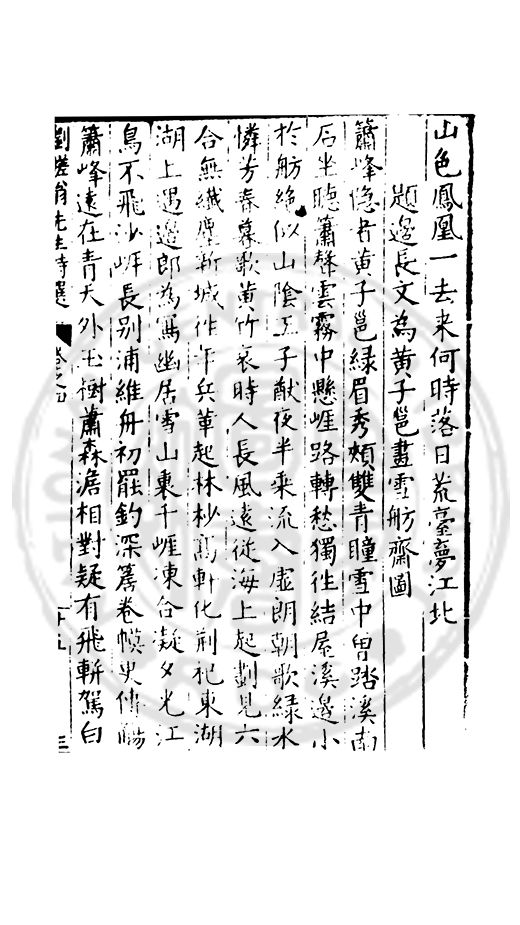 山色鳳凰一去来何時落日荒臺夢江北
題邊長文為黄子邕畫雪舫齋圖
簫峰隐者黄子邕緑眉秀頰雙青瞳雪中曾踏溪南
石坐聽簫聲雲霧中懸崖路轉愁獨徃結屋溪邊小
於舫絶似山陰王子猷夜半乗流入虚朗朝歌緑水
憐芳春暮歌黄竹哀時人長風遠從海上起劃見六
合無纖塵新城作午兵革起林杪高軒化荆杞東湖
湖上遇邊郎為寫幽居雪山裏千崖凍合凝夕光江
鳥不飛沙崖長别浦維舟初罷釣深篝卷幔史傳觴
簫峰遠在青天外玉樹蕭森澹相對疑有飛軿駕白
劉槎翁先生詩選 卷之四 十五 三